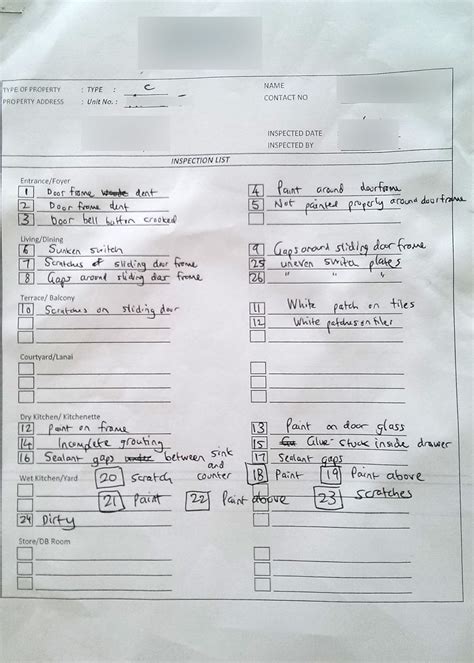 TYPE OF PROPERTY : TYPE : C
PROPERTY ADDRESS : Unit No. :
NAME
CONTACT NO
INSPECTED DATE
INSPECTED BY
INSPECTION LIST
Entrance/Foyer
1 Door frame dent
2 Door frame dent
3 Door bell button crooked
4 Paint around doorframe
5 Not painted properly around doorframe
Living/Dining
6 Sunken switch
7 Scratches of sliding door frame
8 Gaps around sliding door frame
9 Gaps around sliding door frame
25 uneven switch plates
26 " " "
Terrace/ Balcony
10 Scratches on sliding door
11 White patch on tiles
12 White patches on tiles
Courtyard/Lanai
Dry Kitchen/ Kitchenette
12 paint on frame
14 Incomplete grouting
16 Sealant gaps between sink and counter
13 Paint on door glass
15 Glue stuck inside drawer
17 Sealant gaps
Wet Kitchen/Yard
20 scratch
18 Paint
19 Paint above
21 Paint
22 Paint above
23 scratches
24 Dirty
Store/DB Room